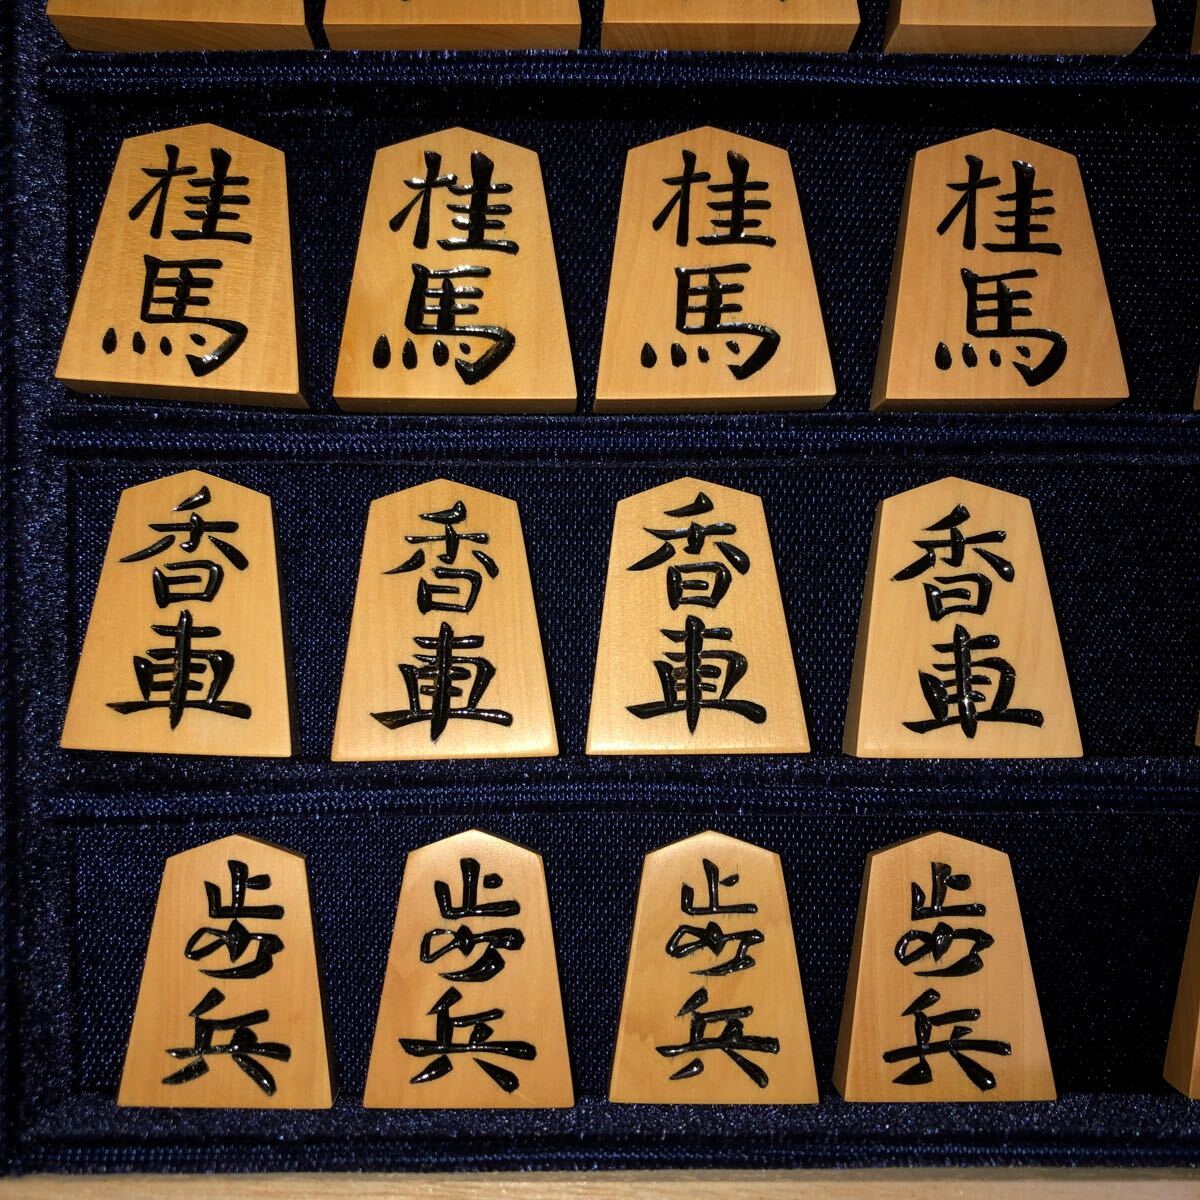 桂馬 桂馬 桂馬 桂馬
香車 香車 香車 香車
歩兵 歩兵 歩兵 歩兵